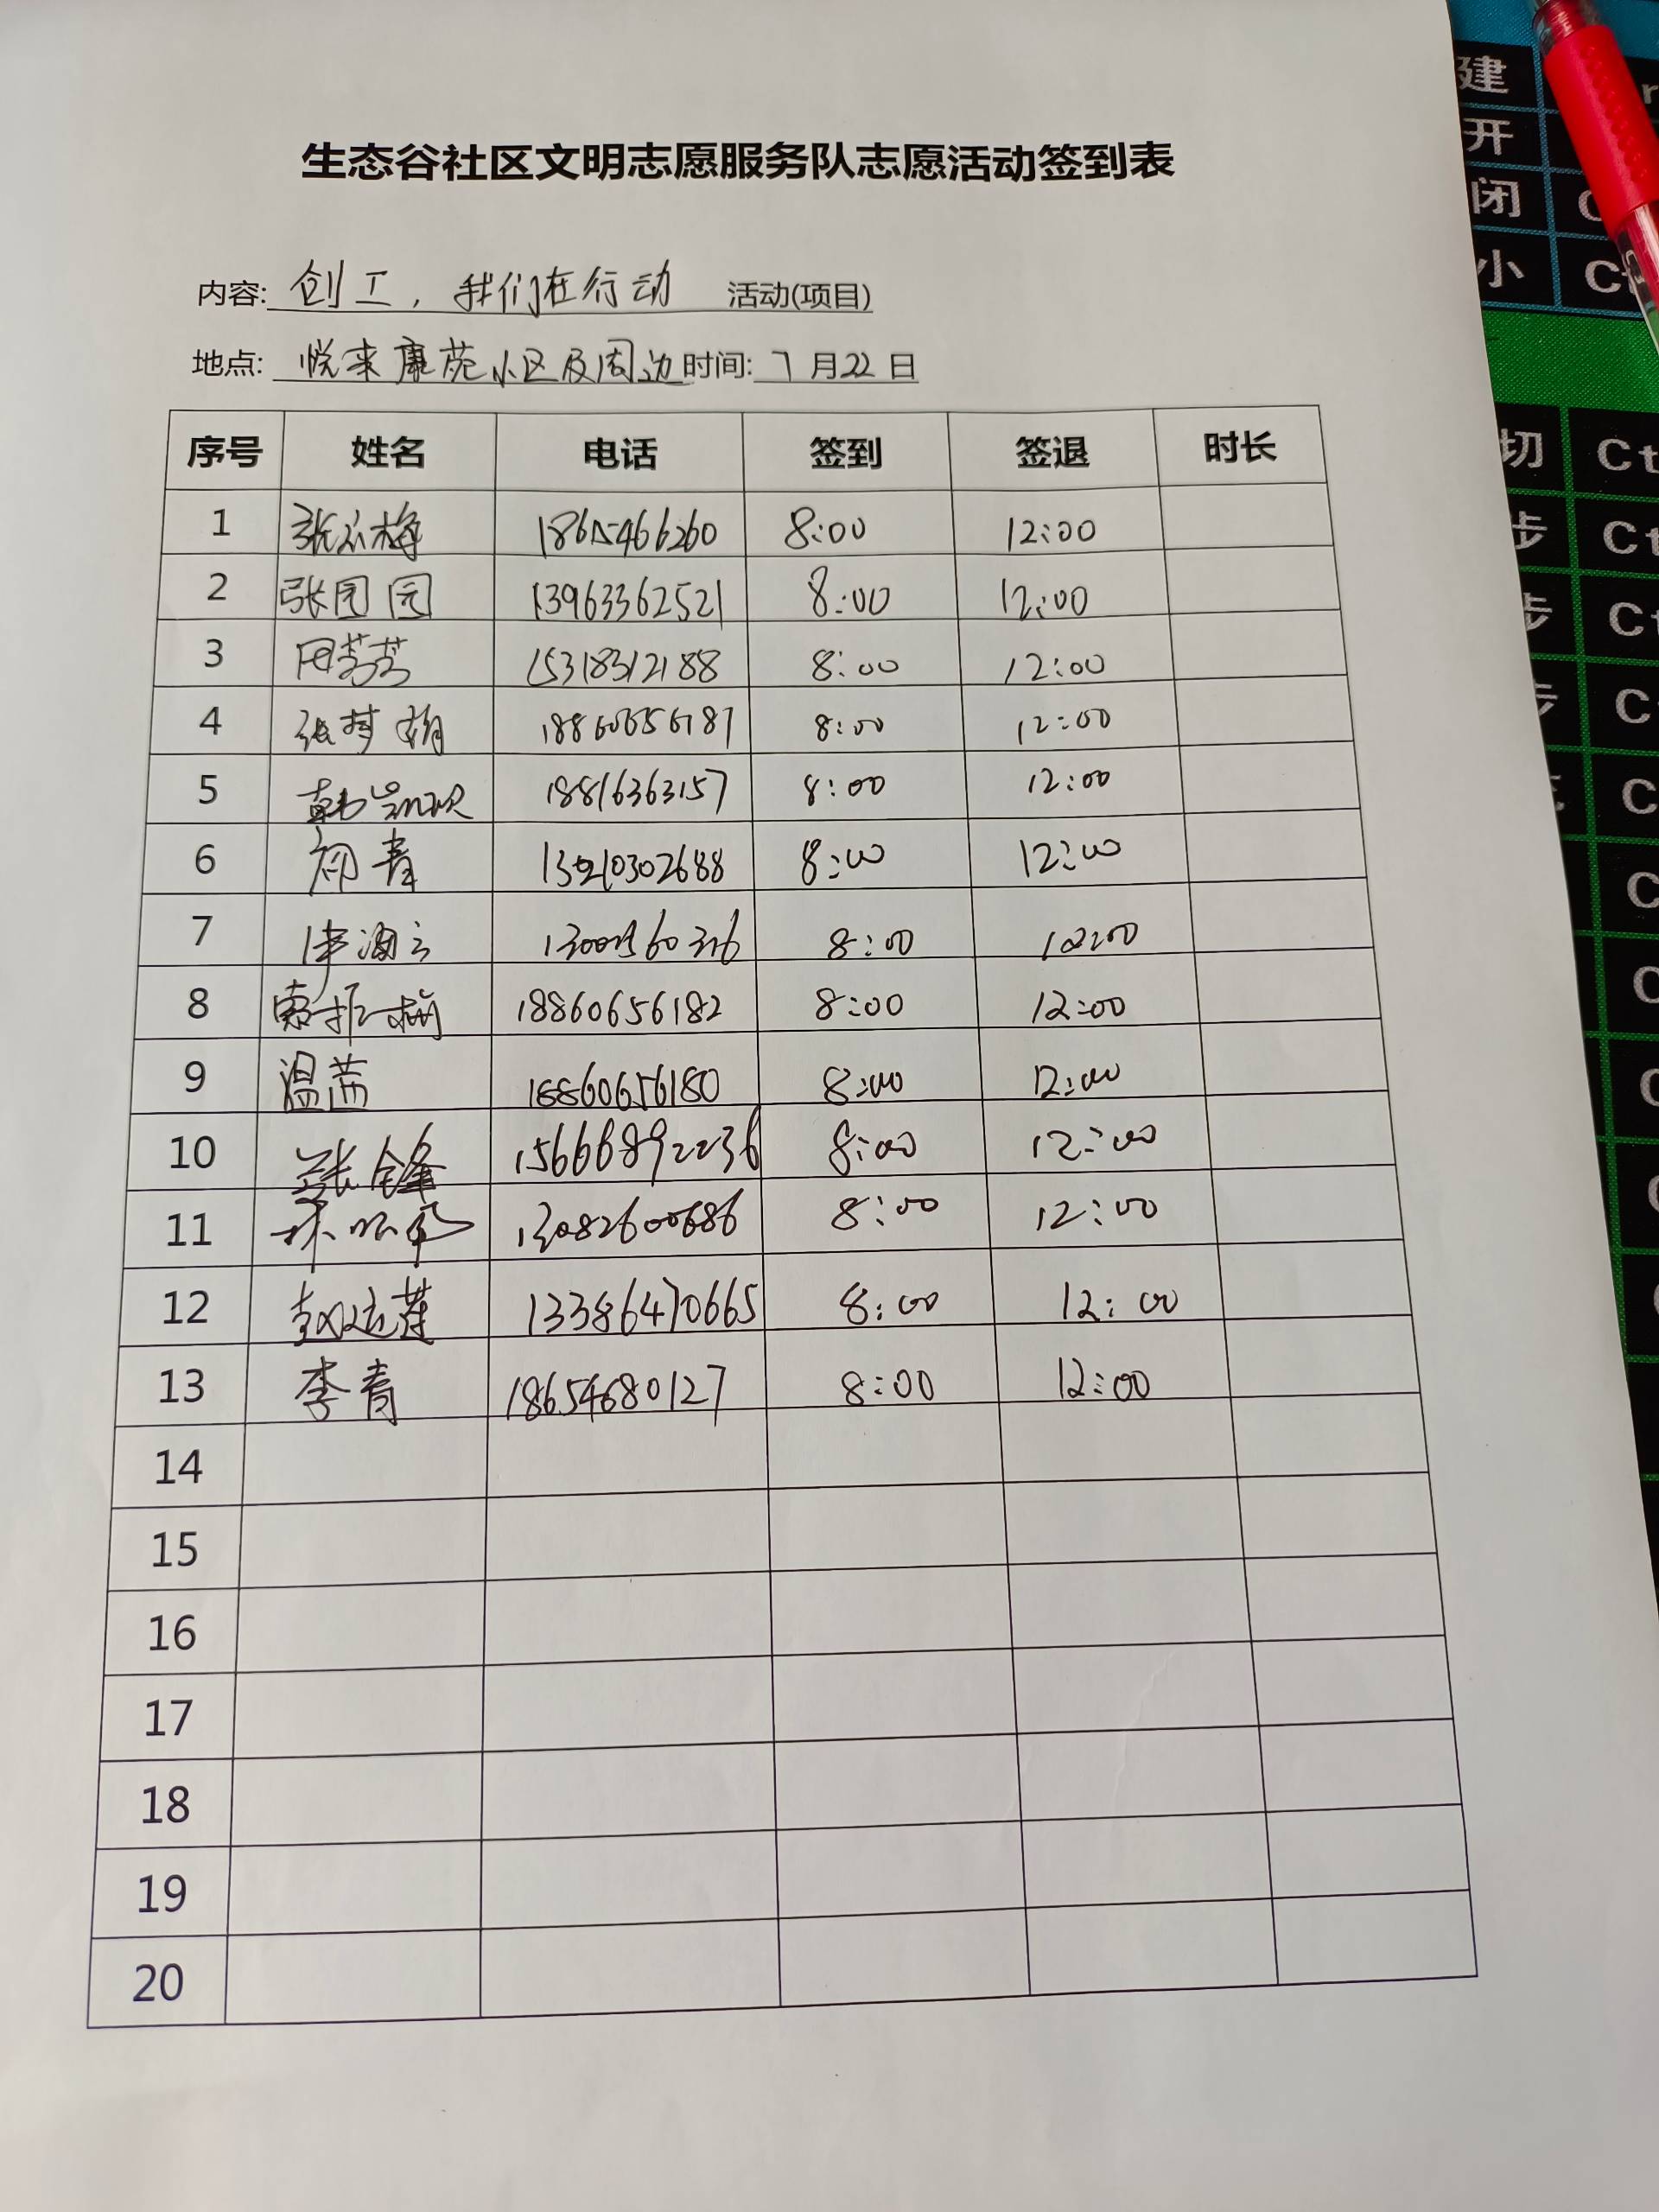 生态谷社区文明志愿服务队志愿活动签到表
内容: 创工，我们在行动 活动(项目)
地点: 悦来康苑小区及周边 时间: 7月22日
序号 姓名 电话 签到 签退 时长
1 18615466260 8:00 12:00
2 张园园 13963362521 8:00 12:00
3 周芳芳 15318312188 8:00 12:00
4 张梦娟 18860656187 8:00 12:00
5 18816363157 8:00 12:00
6 祁青 8:00 12:00
7 8:00 12:00
8 18860656182 8:00 12:00
9 温茜 18860656180 8:00 12:00
10 张锋 15666892236 8:00 12:00
11 13082600686 8:00 12:00
12 赵延莲 13386470665 8:00 12:00
13 李青 18654680127 8:00 12:00
14
15
16
17
18
19
20
建
开
闭
小 Ct
切 Ct
步 Ct
步 Ct
步 C
C
C
C
C